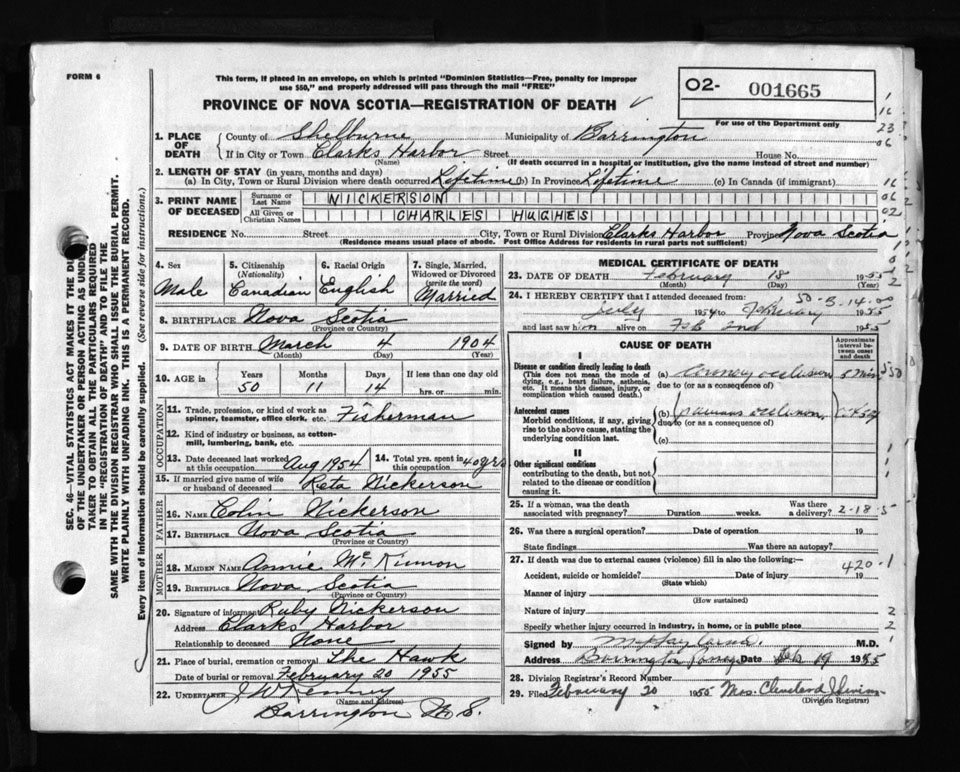 FORM 6
This form, if placed in an envelope, on which is printed "Dominion Statistics—Free, penalty for improper
use $50," and properly addressed will pass through the mail "FREE"
PROVINCE OF NOVA SCOTIA—REGISTRATION OF DEATH
02- 001665
For use of the Department only
SEC. 46—VITAL STATISTICS ACT MAKES IT THE DU
OF THE UNDERTAKER OR PERSON ACTING AS UNDE
TAKER TO OBTAIN ALL THE PARTICULARS REQUIRED
IN THE "REGISTRATION OF DEATH" AND TO FILE THE
SAME WITH THE DIVISION REGISTRAR WHO SHALL ISSUE THE BURIAL PERMIT.
WRITE PLAINLY WITH UNFADING INK. THIS IS A PERMANENT RECORD.
Every item of information should be carefully supplied. (See reverse side for instructions.)
1. PLACE OF DEATH County of Shelburne Municipality of Barrington
If in City or Town Clarks Harbor Street House No.
(Name) (If death occurred in a hospital or institution, give the name instead of street and number)
2. LENGTH OF STAY (in years, months and days)
(a) In City, Town or Rural Division where death occurred Lifetime (b) In Province Lifetime (c) In Canada (if immigrant)
3. PRINT NAME OF DECEASED Surname or Last Name NICKERSON
All Given or Christian Names CHARLES HUGHES
RESIDENCE No. Street City, Town or Rural Division Clarks Harbor Province Nova Scotia
(Residence means usual place of abode. Post Office Address for residents in rural parts not sufficient)
4. Sex Male
5. Citizenship (Nationality) Canadian
6. Racial Origin English
7. Single, Married, Widowed or Divorced (write the word) Married
8. BIRTHPLACE Nova Scotia
(Province or Country)
9. DATE OF BIRTH March 4 1904
(Month) (Day) (Year)
10. AGE in Years 50 Months 11 Days 14 If less than one day old hrs. or min.
OCCUPATION
11. Trade, profession, or kind of work as spinner, teamster, office clerk, etc. Fisherman
12. Kind of industry or business, as cotton-mill, lumbering, bank, etc.
13. Date deceased last worked at this occupation Aug 1954
14. Total yrs. spent in this occupation 40 yrs
15. If married give name of wife or husband of deceased Reta Nickerson
FATHER
16. NAME Colin Nickerson
17. BIRTHPLACE Nova Scotia
(Province or Country)
MOTHER
18. MAIDEN NAME Annie McKinnon
19. BIRTHPLACE Nova Scotia
(Province or Country)
20. Signature of informant Ruby Nickerson
Address Clarks Harbor
Relationship to deceased None
21. Place of burial, cremation or removal The Hawk
Date of burial or removal February 20 1955
22. UNDERTAKER J W Kenney
(Name and Address)
Barrington N.S.
MEDICAL CERTIFICATE OF DEATH
23. DATE OF DEATH February 18 1955
(Month) (Day) (Year)
24. I HEREBY CERTIFY that I attended deceased from:
July 1954 to February 1955
and last saw him alive on Feb 2nd 1955
CAUSE OF DEATH
Approximate interval between onset and death
I
Disease or condition directly leading to death
(This does not mean the mode of dying, e.g., heart failure, asthenia, etc. It means the disease, injury, or complication which caused death.)
(a) coronary occlusion 5 min
due to (or as a consequence of)
Antecedent causes
Morbid conditions, if any, giving rise to the above cause, stating the underlying condition last.
(b) previous occlusion
due to (or as a consequence of)
(c)
II
Other significant conditions
contributing to the death, but not related to the disease or condition causing it.
25. If a woman, was the death associated with pregnancy? Duration weeks. Was there a delivery? 2-18-5
26. Was there a surgical operation? Date of operation 19
State findings Was there an autopsy?
27. If death was due to external causes (violence) fill in also the following:
420.1
Accident, suicide or homicide? Date of injury 19
(State which)
Manner of injury
(How sustained)
Nature of injury
Specify whether injury occurred in industry, in home, or in public place
Signed by M.D.
Address Barrington Passage Date Feb 19 1955
28. Division Registrar's Record Number
29. Filed February 20 1955 Mrs. Cleveland
(Division Registrar)